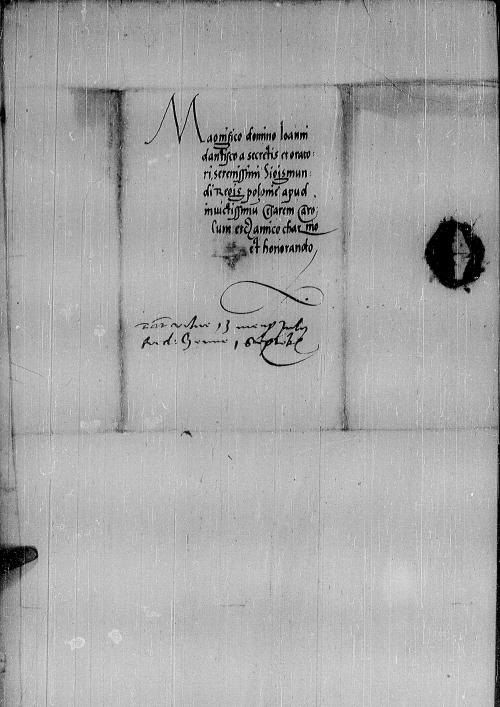 Magnifico domino Ioanni
dantisco a secretis et orato:
ri, serenissimi Sigismun:
di Regis poloniae apud
invictissimu Cesarem Caro:
lum etc. amico char.mo
et honorando
13 July
1